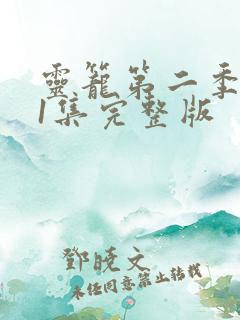 靈籠第二季
1集完整版
鄧曉文
未经同意禁止转载